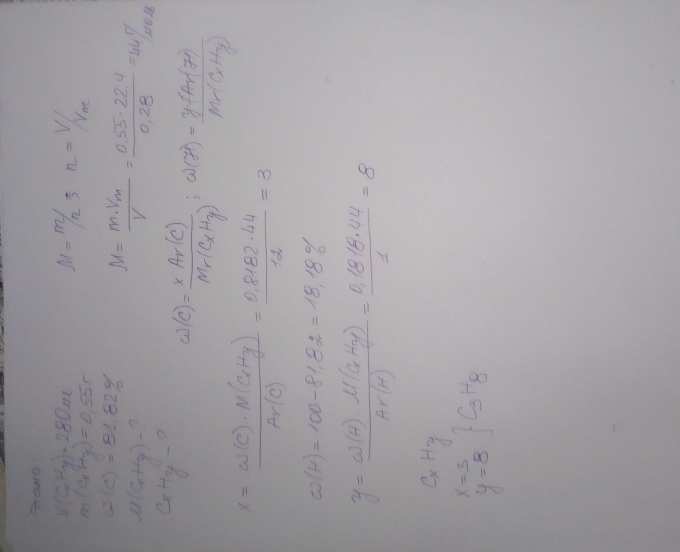 Дано:
V(CxHy)=280мл
m(CxHy)=0,55г
ω(C)=81,82%
M(CxHy)-?
CxHy-?
M=m/n ; n=V/Vm
M=m·Vm/V=0,55·22.4/0,28=44г/моль
ω(C)=x Ar(C)/Mr(CxHy); ω(H)=y·Ar(H)/Mr(CxHy)
x=ω(C)·M(CxHy)/Ar(C)=0,8182·44/12=3
ω(H)=100-81,82=18,18%
y=ω(H)·M(CxHy)/Ar(H)=0,1818·44/1=8
CxHy
x=3
y=8 } C3H8